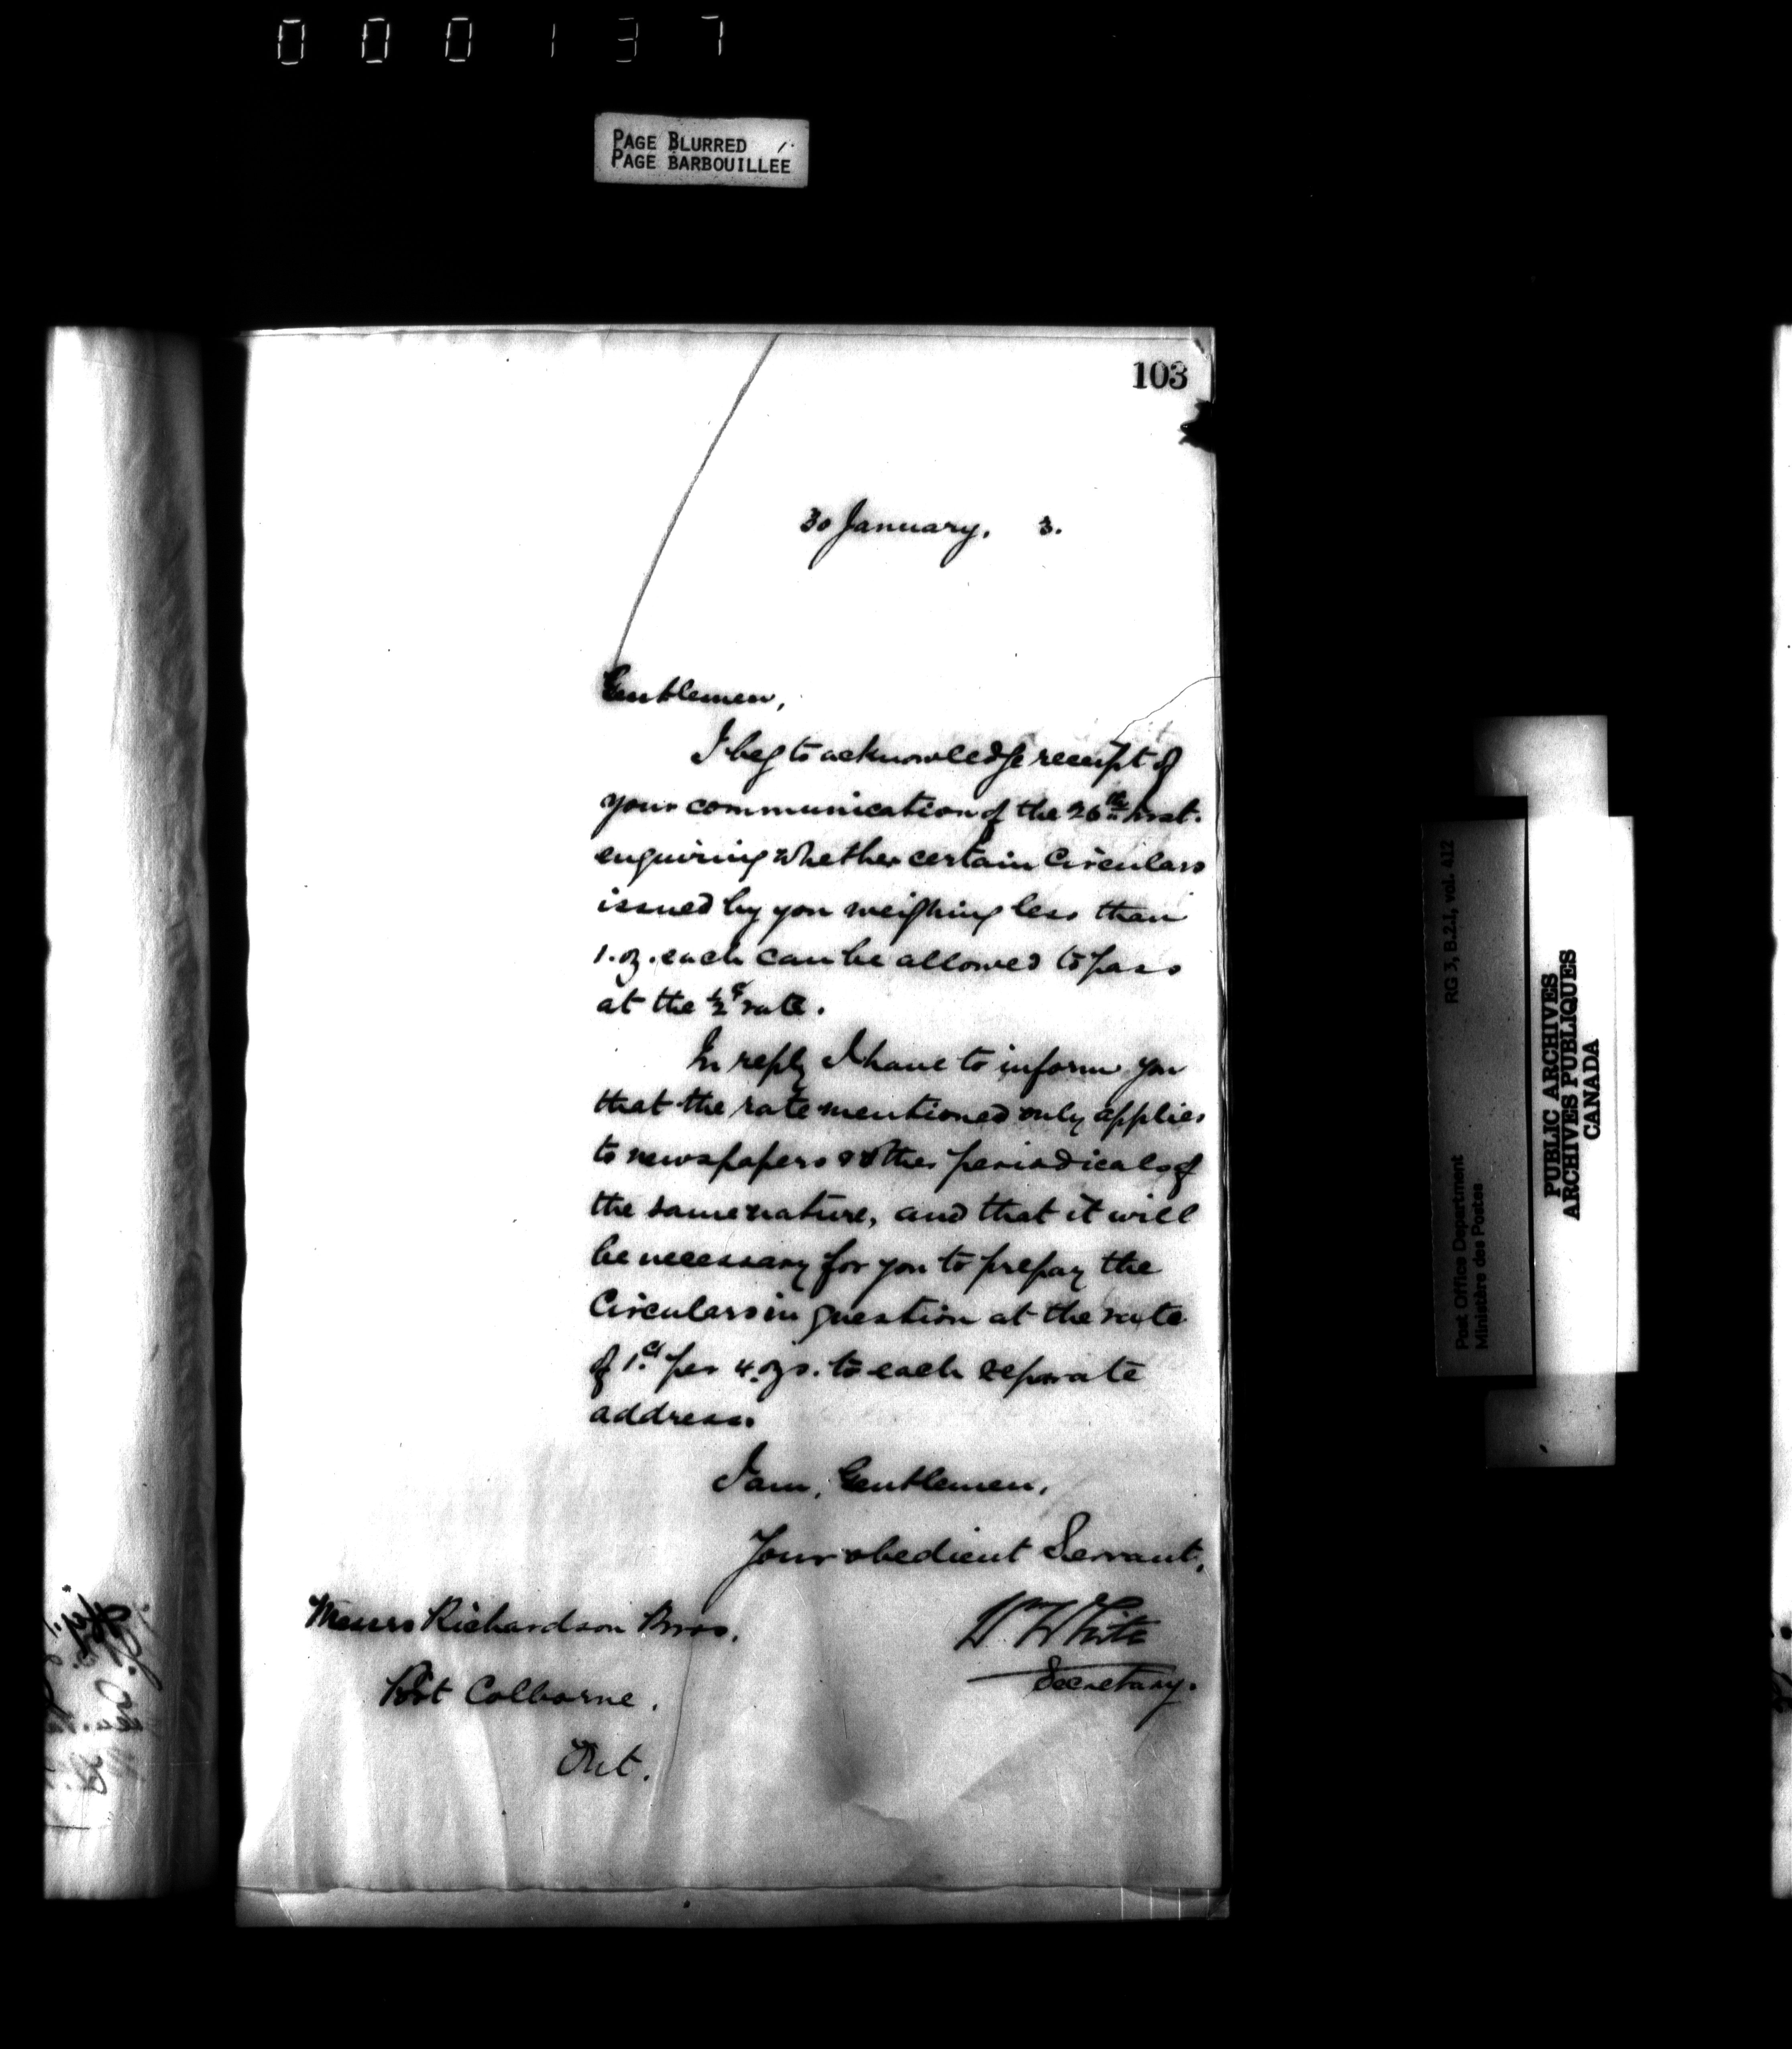 000137
PAGE BLURRED
PAGE BARBOUILLÉE
103
30 January, 3.
Gentlemen,
I beg to acknowledge receipt of
your communication of the 26th inst.
enquiring whether certain Circulars
issued by you weighing less than
1. oz. each can be allowed to pass
at the ½c rate.
In reply I have to inform you
that the rate mentioned only applies
to newspapers & other periodicals of
the same nature, and that it will
be necessary for you to prepay the
Circulars in question at the rate
of 1c per 4. ozs. to each separate
address.
I am, Gentlemen,
Your obedient Servant,
W White
Secretary.
Messrs Richardson Bros.
Port Colborne.
Ont.
RG 3, B.2.1, vol. 412
Post Office Department
Ministère des Postes
PUBLIC ARCHIVES
ARCHIVES PUBLIQUES
CANADA